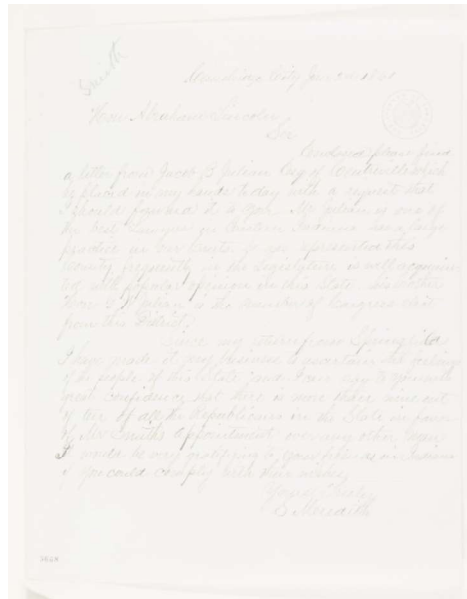 Smith
Cambridge City Jan 1861
Hon Abraham Lincoln
Sir
Enclosed please find
a letter from Jacob B Julian Esq of Centreville which
he placed in my hands today with a request that
I should forward it to you Mr Julian is one of
the best lawyers in Eastern Indiana has a large
practice in our Courts
County frequently in the Legislature is well acquain
ted with popular opinion in this State his brother
Hon G W Julian is the member of Congress elect
from this District
Since my return from Springfield
I have made it my business to ascertain the feelings
of the people of this State and I can say to you with
great confidence that there is more than nine out
of ten of all the Republicans in the State in favor
of Mr Smiths appointment over any other man
I would be very gratifying to your friends in Indiana
if you could comply with their wishes
Yours Truly
S Meredith